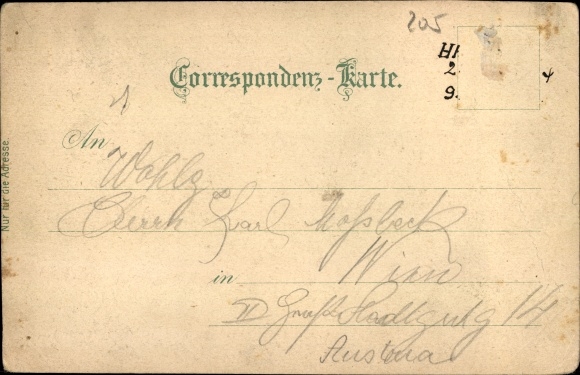 205
H
2
4
9.
Correspondenz-Karte.
An
Wohlg
Herrn Karl
in Wien
II Große Stadtgutg 14
Austria
Nur für die Adresse.